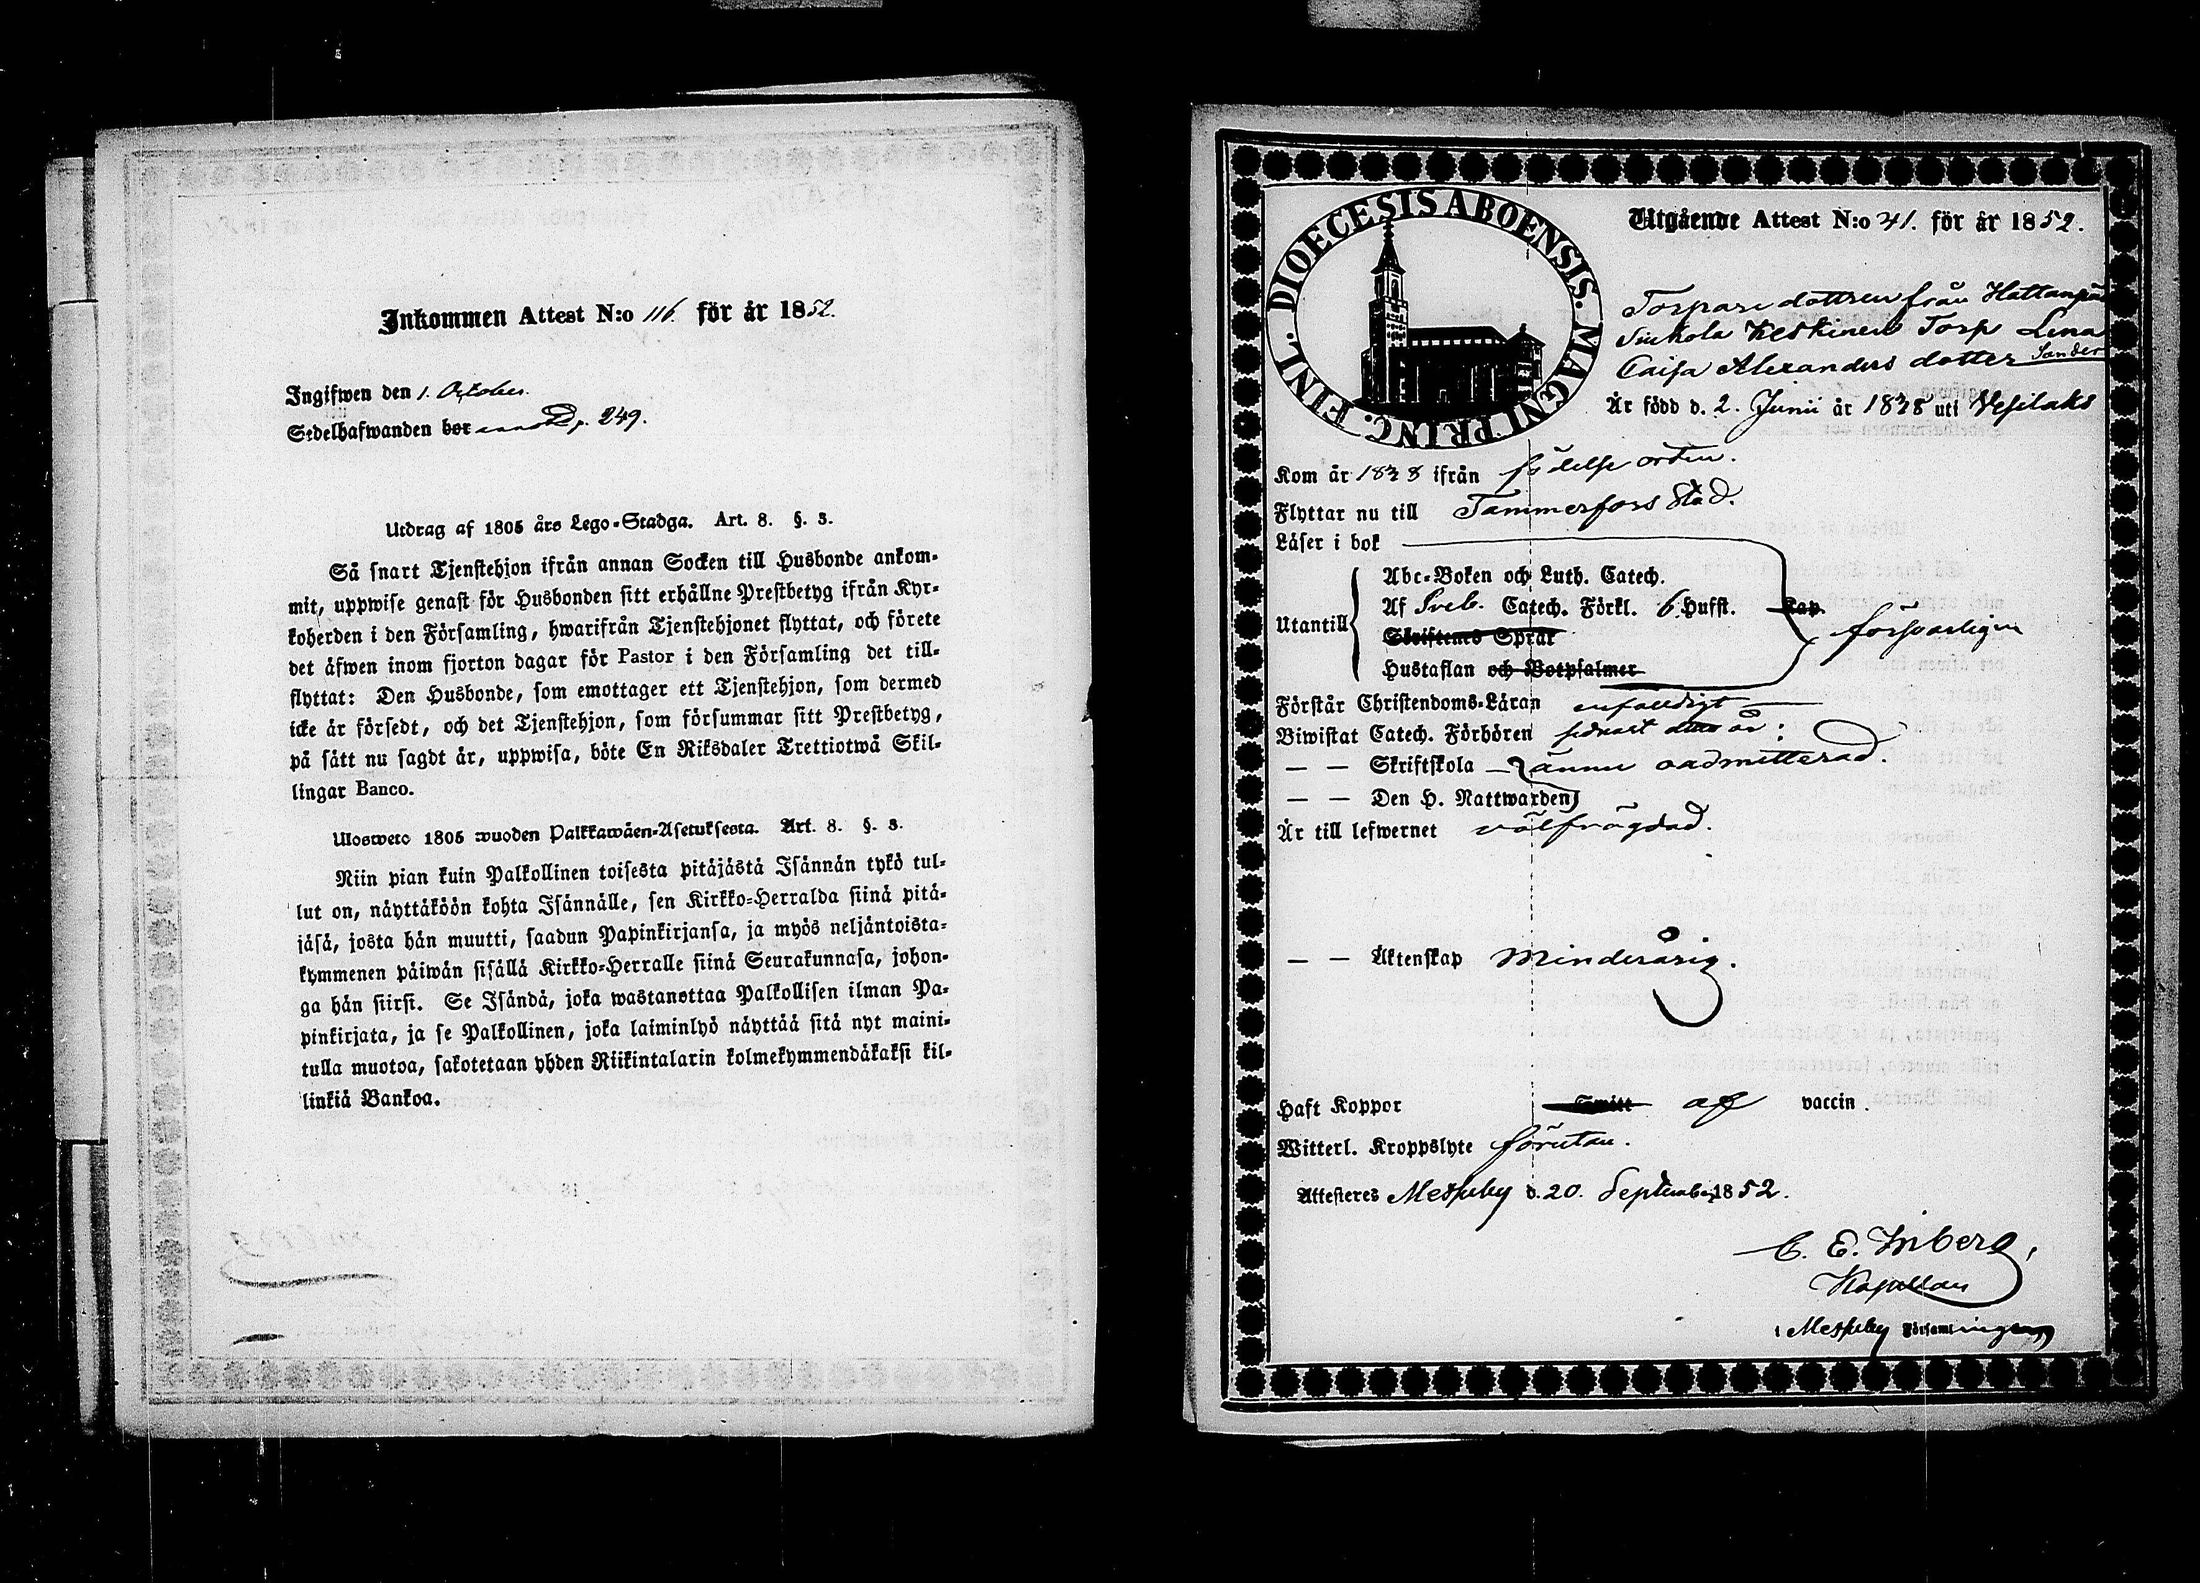 Inkommen Attest N:o 116. för år 1852.
Ingifwen den 1. October.
Sedelhafwanden bor p. 249.
Utdrag af 1805 års Lego-Stadga. Art. 8. §. 3.
Så snart Tjenstehjon ifrån annan Socken till Husbonde ankom-
mit, uppwise genast för Husbonden sitt erhållne Prestbetyg ifrån Kyr-
koherden i den Församling, hwarifrån Tjenstehjonet flyttat, och förete
det äfwen inom fjorton dagar för Pastor i den Församling det till-
flyttat: Den Husbonde, som emottager ett Tjenstehjon, som dermed
icke är försedt, och det Tjenstehjon, som försummar sitt Prestbetyg,
på sätt nu sagdt är, uppwisa, böte En Riksdaler Trettiotwå Skil-
lingar Banco.
Ulosweto 1805 wuoden Palkkawäen-Asetuksesta. Art. 8. §. 3.
Niin pian kuin Palkollinen toisesta pitäjästä Isännän tykö tul-
lut on, näyttäköön kohta Isännälle, sen Kirkko-Herralda siinä pitä-
jäsä, josta hän muutti, saadun Papinkirjansa, ja myös neljäntoista-
kymmenen päiwän sisällä Kirkko-Herralle siinä Seurakunnasa, johon-
ga hän siirsi. Se Isändä, joka wastanottaa Palkollisen ilman Pa-
pinkirjata, ja se Palkollinen, joka laiminlyö näyttää sitä nyt maini-
tulla muotoa, sakotetaan yhden Riikintalarin kolmekymmendäkaksi kil-
linkiä Bankoa.
DIOECESIS ABOENSIS. MAGNI PRINC. FINL.
Utgående Attest N:o 41. för år 1852.
Torpare dottren från Hattanpää
Siukola Keskinen Torp Lena
Caisa Alexanders dotter Sander
Är född d. 2. Junii år 1838 uti Vesilaks
Kom år 1838 ifrån födelse orten.
Flyttar nu till Tammerfors Stad.
Läser i bok
Abc-Boken och Luth. Catech.
Af Sveb. Catech. Förkl. 6 Hufst. Kap.
Utantill försvarligen
Skriftenes Spräk
Hustaflan och Botpsalmer
Förstår Christendoms-Läran enfaldigt
Biwistat Catech. Förhören
— — Skriftskola ännu oadmitterad.
— — Den H. Nattwarden
Är till lefwernet välfrägdad.
— — Äktenskap Minderårig.
Haft Koppor Smitt af vaccin.
Witterl. Kroppslyte förutan.
Attesteres Messuby d. 20. September 1852.
C. E. Inberg,
Kapellan
i Messuby Församlingen